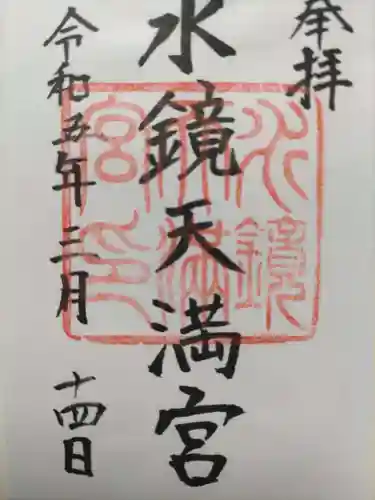 奉拝
水鏡天満宮
令和五年三月十四日
水鏡
天満
宮印